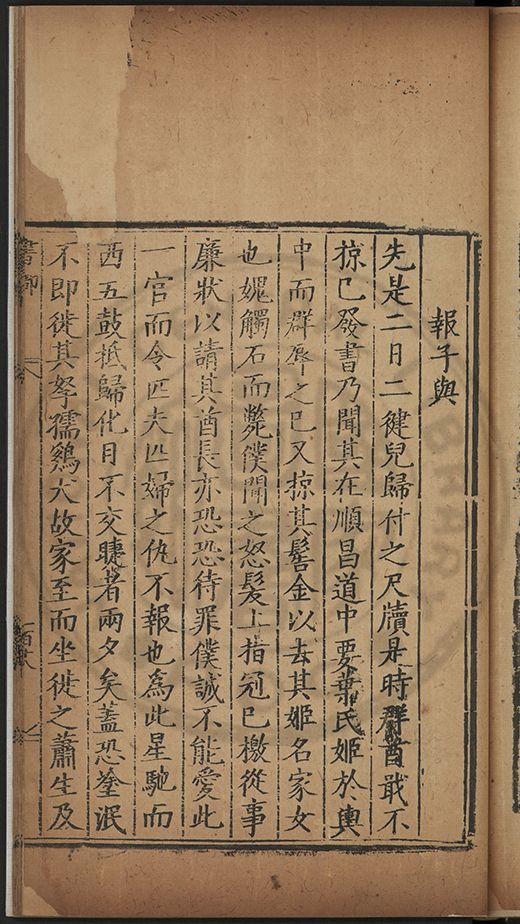 報子與
先是二日二健兒歸付之尺牘是時群酋戢不
掠已發書乃聞其在順昌道中要葉氏姬於輿
中而群辱之已又掠其髻金以去其姬名家女
也媿觸石而斃僕聞之怒髮上指冠已檄從事
廉狀以請其酋長亦恐恐待罪僕誠不能愛此
一官而令匹夫匹婦之仇不報也為此星馳而
西五鼓抵歸化目不交睫者兩夕矣蓋恐塗泯
不即徙其孥孺鷄犬故家至而坐徙之蕭生及